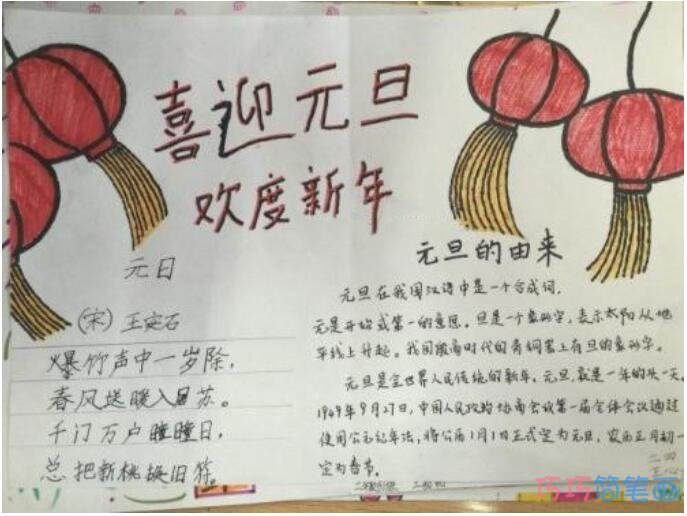 喜迎元旦
欢度新年
元日
(宋) 王安石
爆竹声中一岁除，
春风送暖入屠苏。
千门万户瞳瞳日，
总把新桃换旧符。
元旦的由来
元旦在我国汉语中是一个合成词，
元是开始或第一的意思。旦是一个象形字，表示太阳从地
平线上升起。我国殷商时代的青铜器上有旦的象形字。
元旦是全世界人民传统的新年，元旦，就是一年的头一天。
1949年9月27日，中国人民政治协商会议第一届全体会议通过
使用公元纪年法，将公历1月1日正式定为元旦，农历正月初一
定为春节。
二四
巧巧简笔画